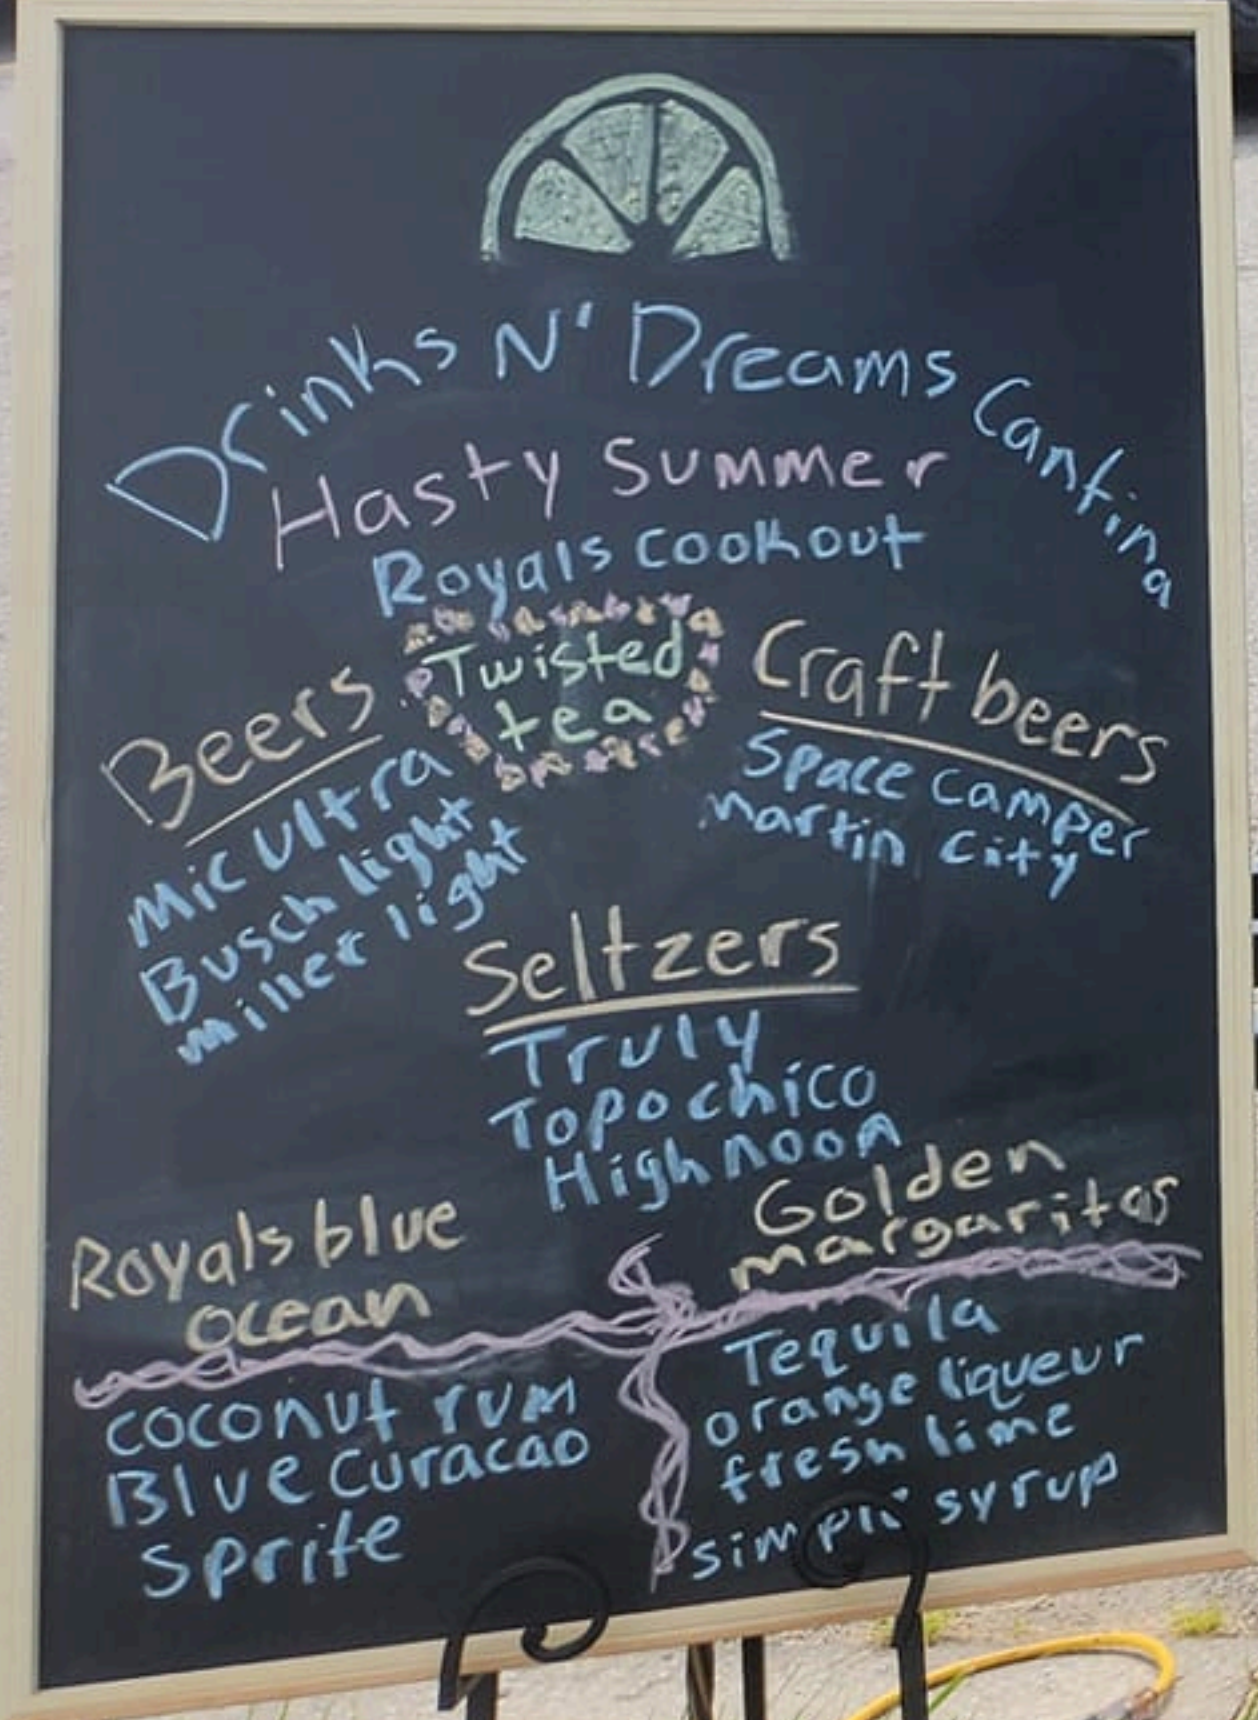 Drinks N' Dreams Cantina
Hasty Summer
Royals cookout
Twisted
tea
Beers
Mic Ultra
Busch light
miller light
Craft beers
Space Camper
Martin City
Seltzers
Truly
Topo chico
High noon
Royals blue
ocean
coconut rum
Blue curacao
Sprite
Golden
margaritas
Tequila
orange liqueur
fresh lime
syrup